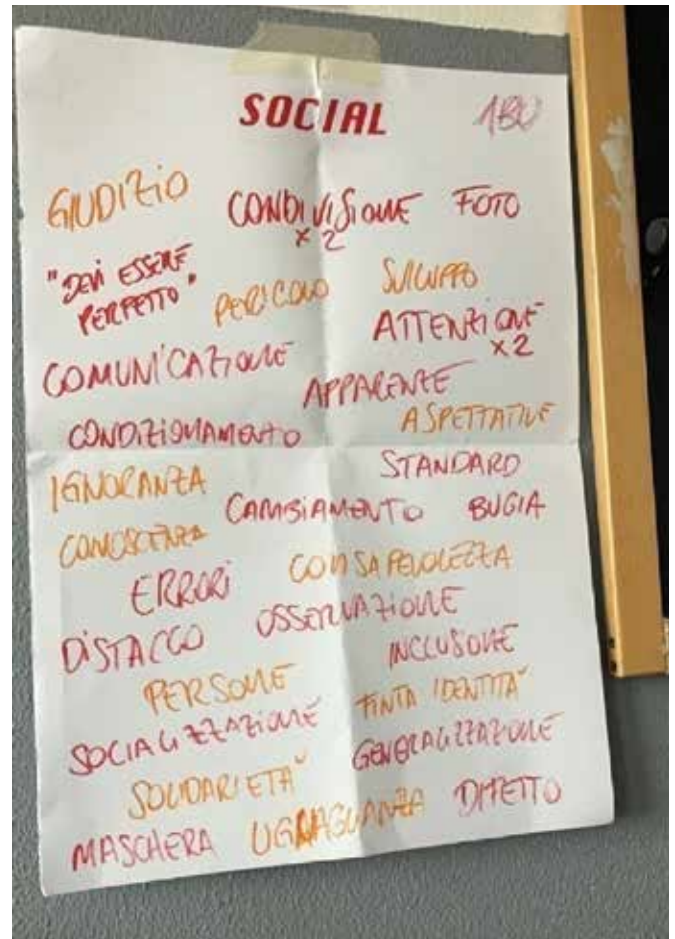 SOCIAL 1BU
GIUDIZIO CONDIVISIONE x2 FOTO
"DEVI ESSERE PERFETTO" PERICOLO SVILUPPO
COMUNICAZIONE ATTENZIONE x2
APPARENTE
CONDIZIONAMENTO ASPETTATIVE
IGNORANZA STANDARD
CAMBIAMENTO BUGIA
CONOSCENZA
ERRORI CONSAPEVOLEZZA
DISTACCO OSSERVAZIONE
INCLUSIONE
PERSONE FINTA IDENTITÀ
SOCIALIZZAZIONE GENERALIZZAZIONE
SOLIDARIETÀ
MASCHERA UGUAGLIANZA DIFETTO